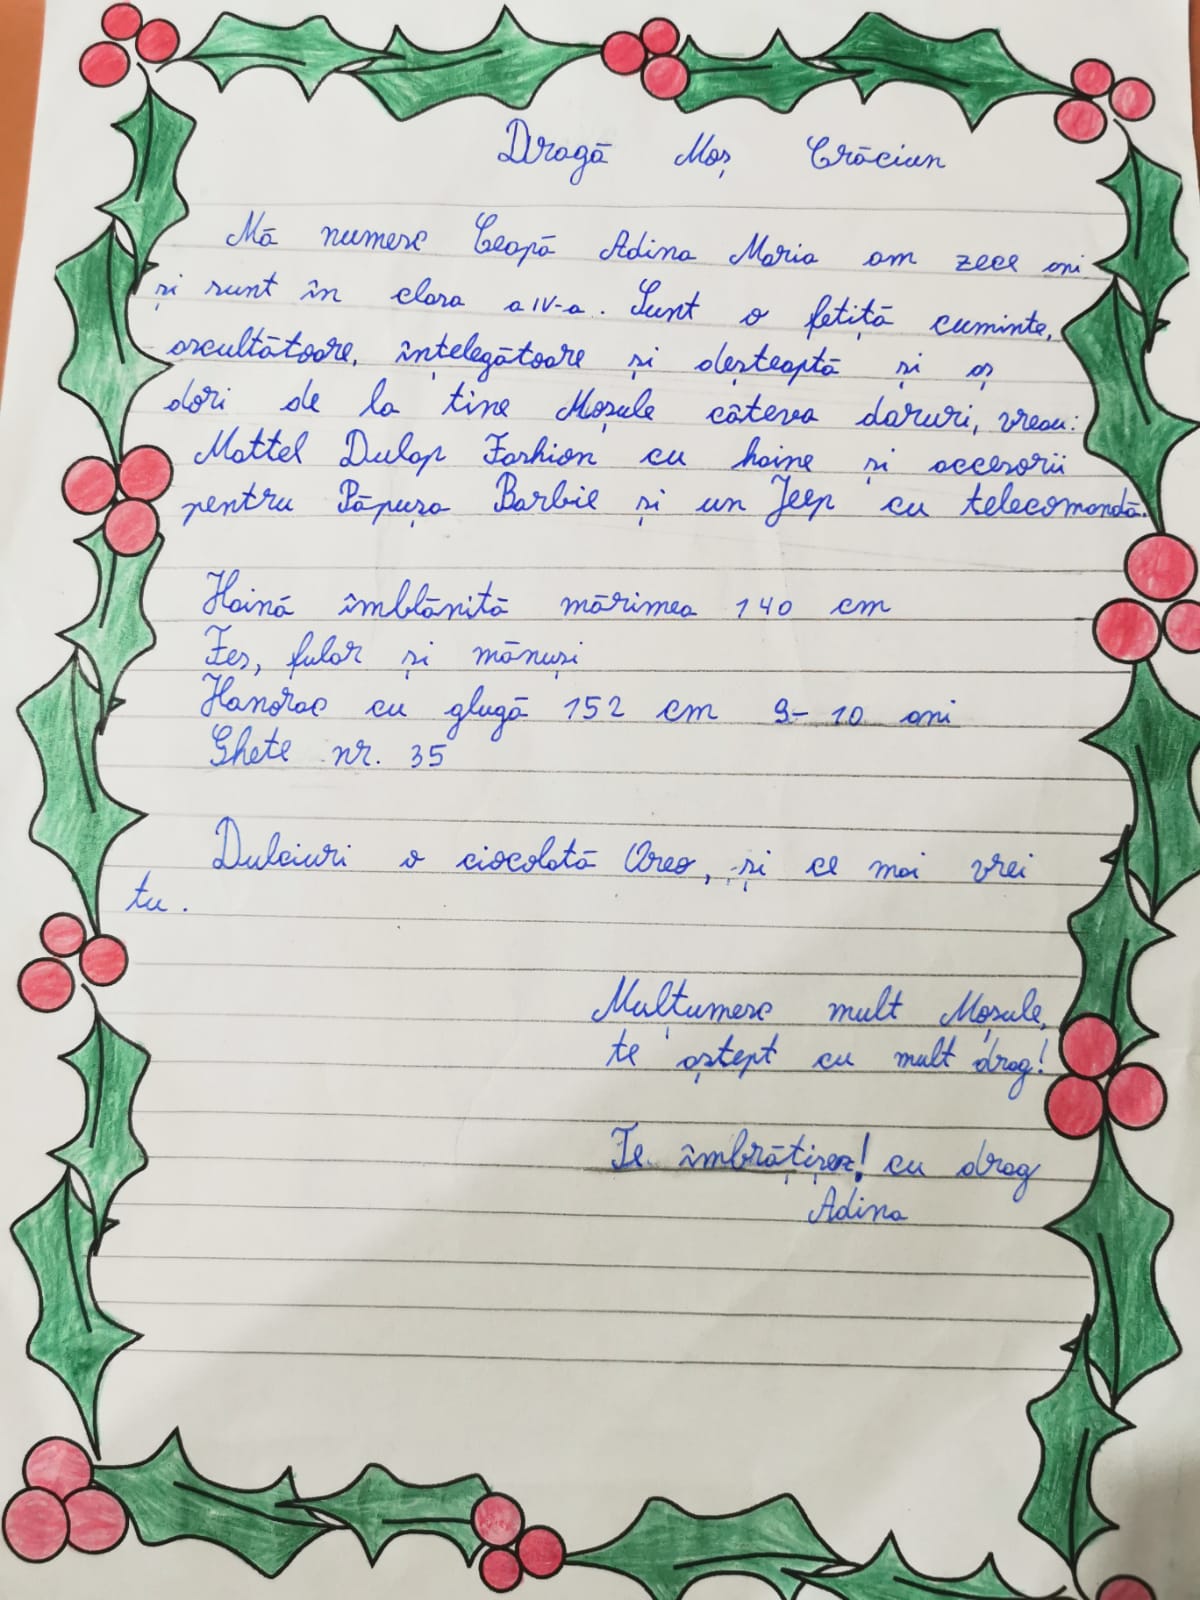 Dragă Moș Crăciun
Mă numesc Ceapă Adina Maria am zece ani
și sunt în clasa a IV-a. Sunt o fetiță cuminte,
ascultătoare, înțelegătoare și deșteaptă și aș
dori de la tine Moșule câteva daruri, vreau:
Mattel Dulap Fashion cu haine și accesorii
pentru Păpușa Barbie și un Jeep cu telecomandă.
Haină îmblănită mărimea 140 cm
Fes, fular și mănuși
Hanorac cu glugă 152 cm 9-10 ani
Ghete nr. 35
Dulciuri o ciocolată Oreo, și ce mai vrei
tu.
Mulțumesc mult Moșule,
te aștept cu mult drag!
Te îmbrățișez! cu drag
Adina